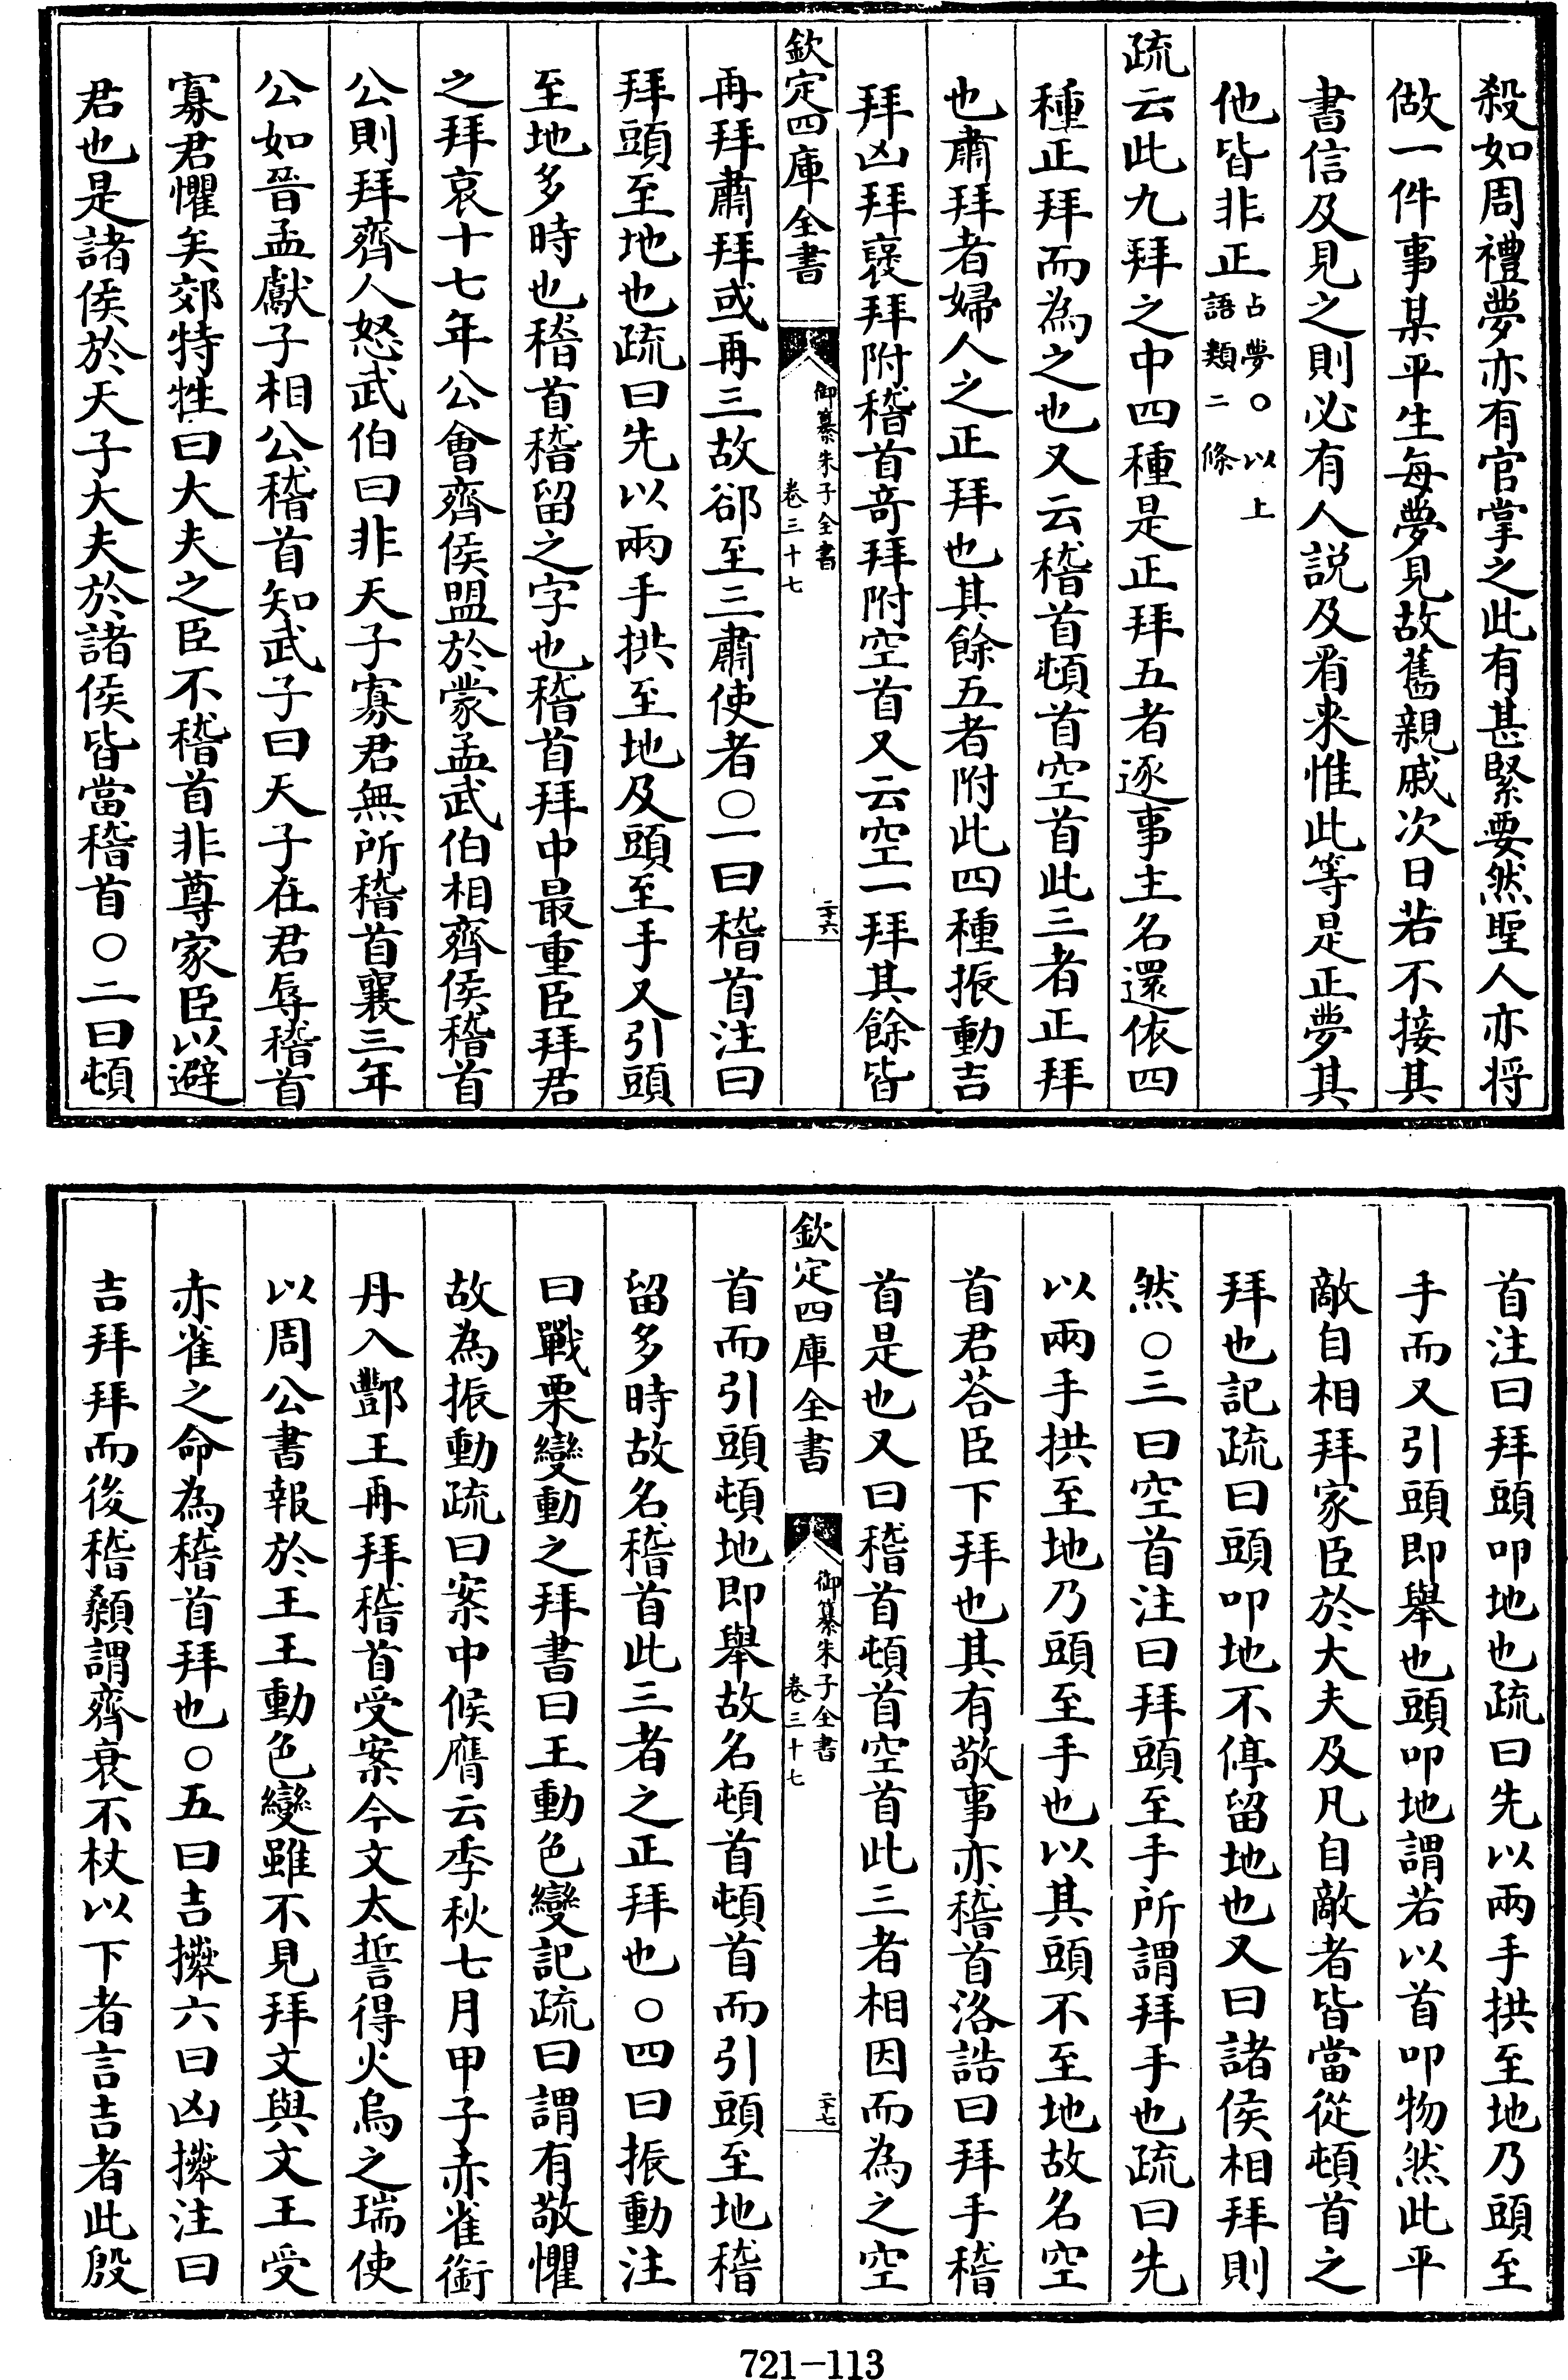 殺如周禮夢亦有官掌之此有甚緊要然聖人亦将
做一件事某平生每夢見故舊親戚次日若不接其
書信及見之則必有人說及看来惟此等是正夢其
他皆非正占夢○以上
語類二條
疏云此九拜之中四種是正拜五者逐事主名還依四
種正拜而為之也又云稽首頓首空首此三者正拜
也肅拜者婦人之正拜也其餘五者附此四種振動吉
拜凶拜襃拜附稽首竒拜附空首又云空一拜其餘皆
欽定四庫全書
御纂朱子全書
卷三十七
二十六
再拜肅拜或再三故郤至三肅使者○一曰稽首注曰
拜頭至地也疏曰先以兩手拱至地及頭至手又引頭
至地多時也稽首稽留之字也稽首拜中最重臣拜君
之拜哀十七年公會齊侯盟於蒙孟武伯相齊侯稽首
公則拜齊人怒武伯曰非天子寡君無所稽首襄三年
公如晉孟獻子相公稽首知武子曰天子在君辱稽首
寡君懼矣郊特牲曰大夫之臣不稽首非尊家臣以避
君也是諸侯於天子大夫於諸侯皆當稽首○二曰頓
首注曰拜頭叩地也疏曰先以兩手拱至地乃頭至
手而又引頭即舉也頭叩地謂若以首叩物然此平
敵自相拜家臣於大夫及凡自敵者皆當從頓首之
拜也記疏曰頭叩地不停留地也又曰諸侯相拜則
然○三曰空首注曰拜頭至手所謂拜手也疏曰先
以兩手拱至地乃頭至手也以其頭不至地故名空
首君荅臣下拜也其有敬事亦稽首洛誥曰拜手稽
首是也又曰稽首頓首空首此三者相因而為之空
欽定四庫全書
御纂朱子全書
卷三十七
二十七
首而引頭頓地即舉故名頓首頓首而引頭至地稽
留多時故名稽首此三者之正拜也○四曰振動注
曰戰栗變動之拜書曰王動色變記疏曰謂有敬懼
故為振動疏曰案中候膺云季秋七月甲子赤雀銜
丹入酆王再拜稽首受案今文太誓得火烏之瑞使
以周公書報於王王動色變雖不見拜文與文王受
赤雀之命為稽首拜也○五曰吉𢷎六曰凶𢷎注曰
吉拜拜而後稽顙謂齊衰不杖以下者言吉者此殷
721-113